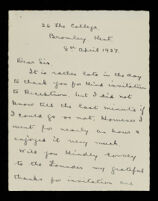 26 The College
Bromley Kent
8th April 1937.
Dear Sir
It is rather late in the day
to thank you for kind invitation
to Reception but I did not
know till the last minute if
I could go or not. However I
went for nearly an hour &
enjoyed it very much
Will you kindly convey
to the Leaders my grateful
thanks for invitation and